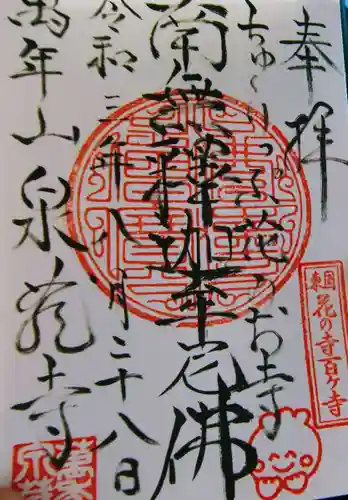 奉拝
東国花の寺百ヶ寺
ちゅうりっぷ花のお寺
南無釋迦牟尼佛
令和三年八月二十八日
萬年山泉龍寺